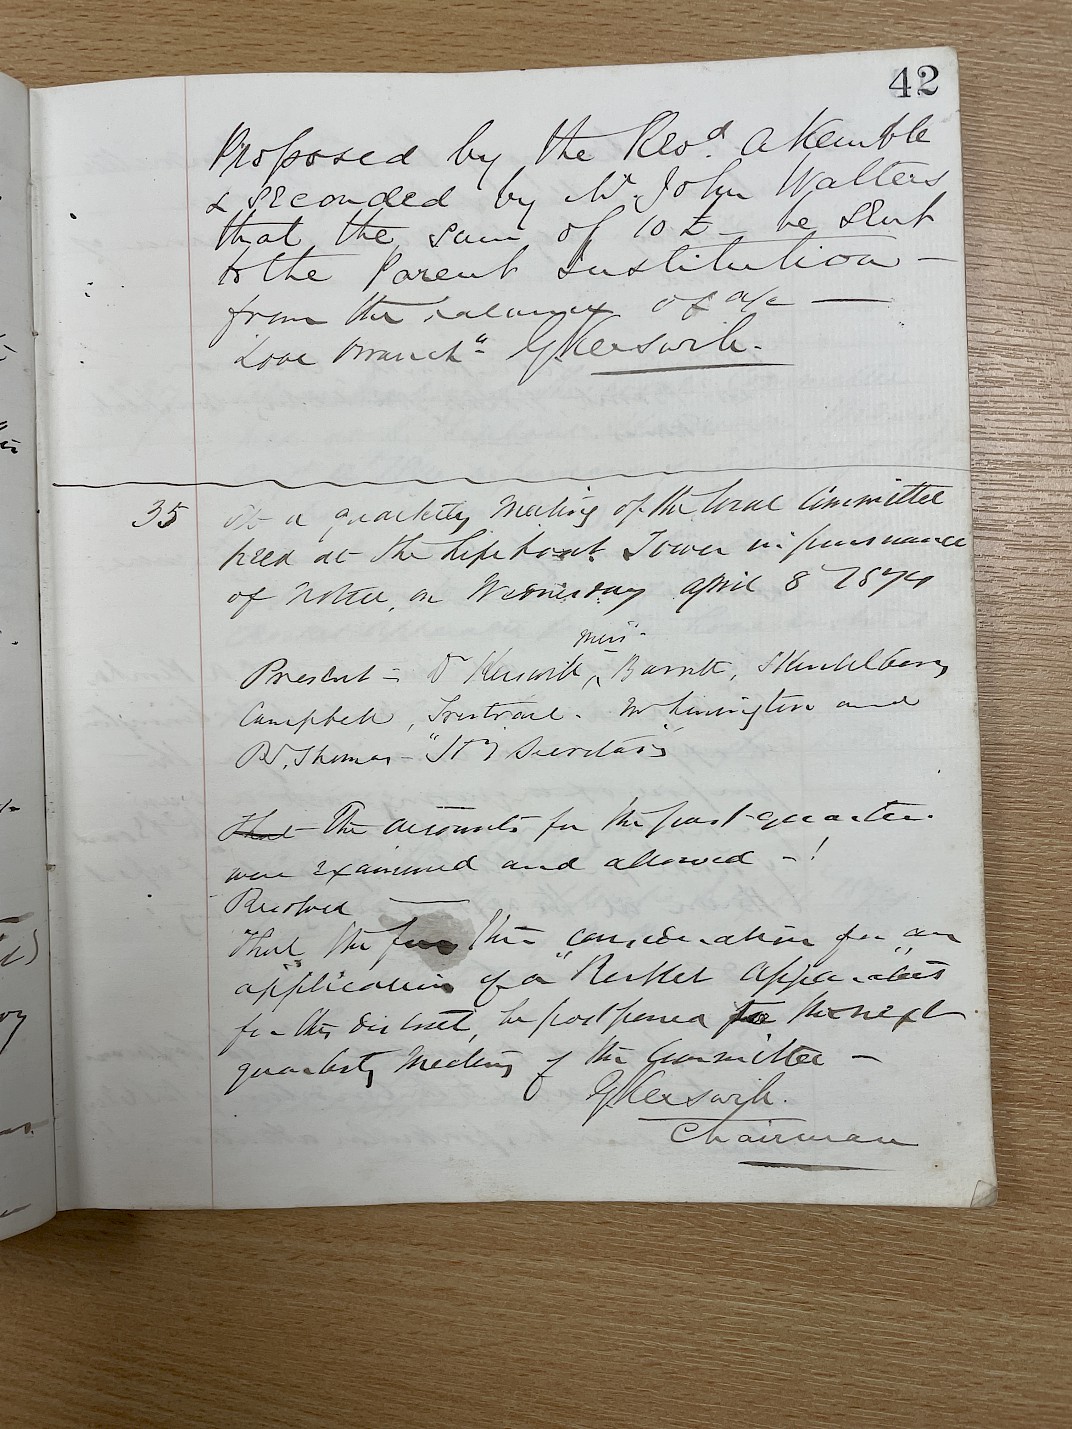 42
Proposed by the Revd. A Kemble
& seconded by Mr. John Walters
that the sum of 10 £ - be sent
to the Parent Institution -
from the balance of a/c —
Looe Branch" G Kerswill.
35
At a quarterly Meeting of the local Committee
held at the Lifeboat Tower in pursuance
of Notice, on Wednesday April 8 1874
Messrs.
Present = Dr Kerswill, Barrett,
Campbell, and
Thomas - "Hy Secretary"
That The accounts for the past quarter
were examined and allowed - !
Resolved —
That the further consideration for "an
application" of a "Rocket Apparatus
for this district, be postponed to the next
quarterly Meeting of the Committee -
G Kerswill.
Chairman